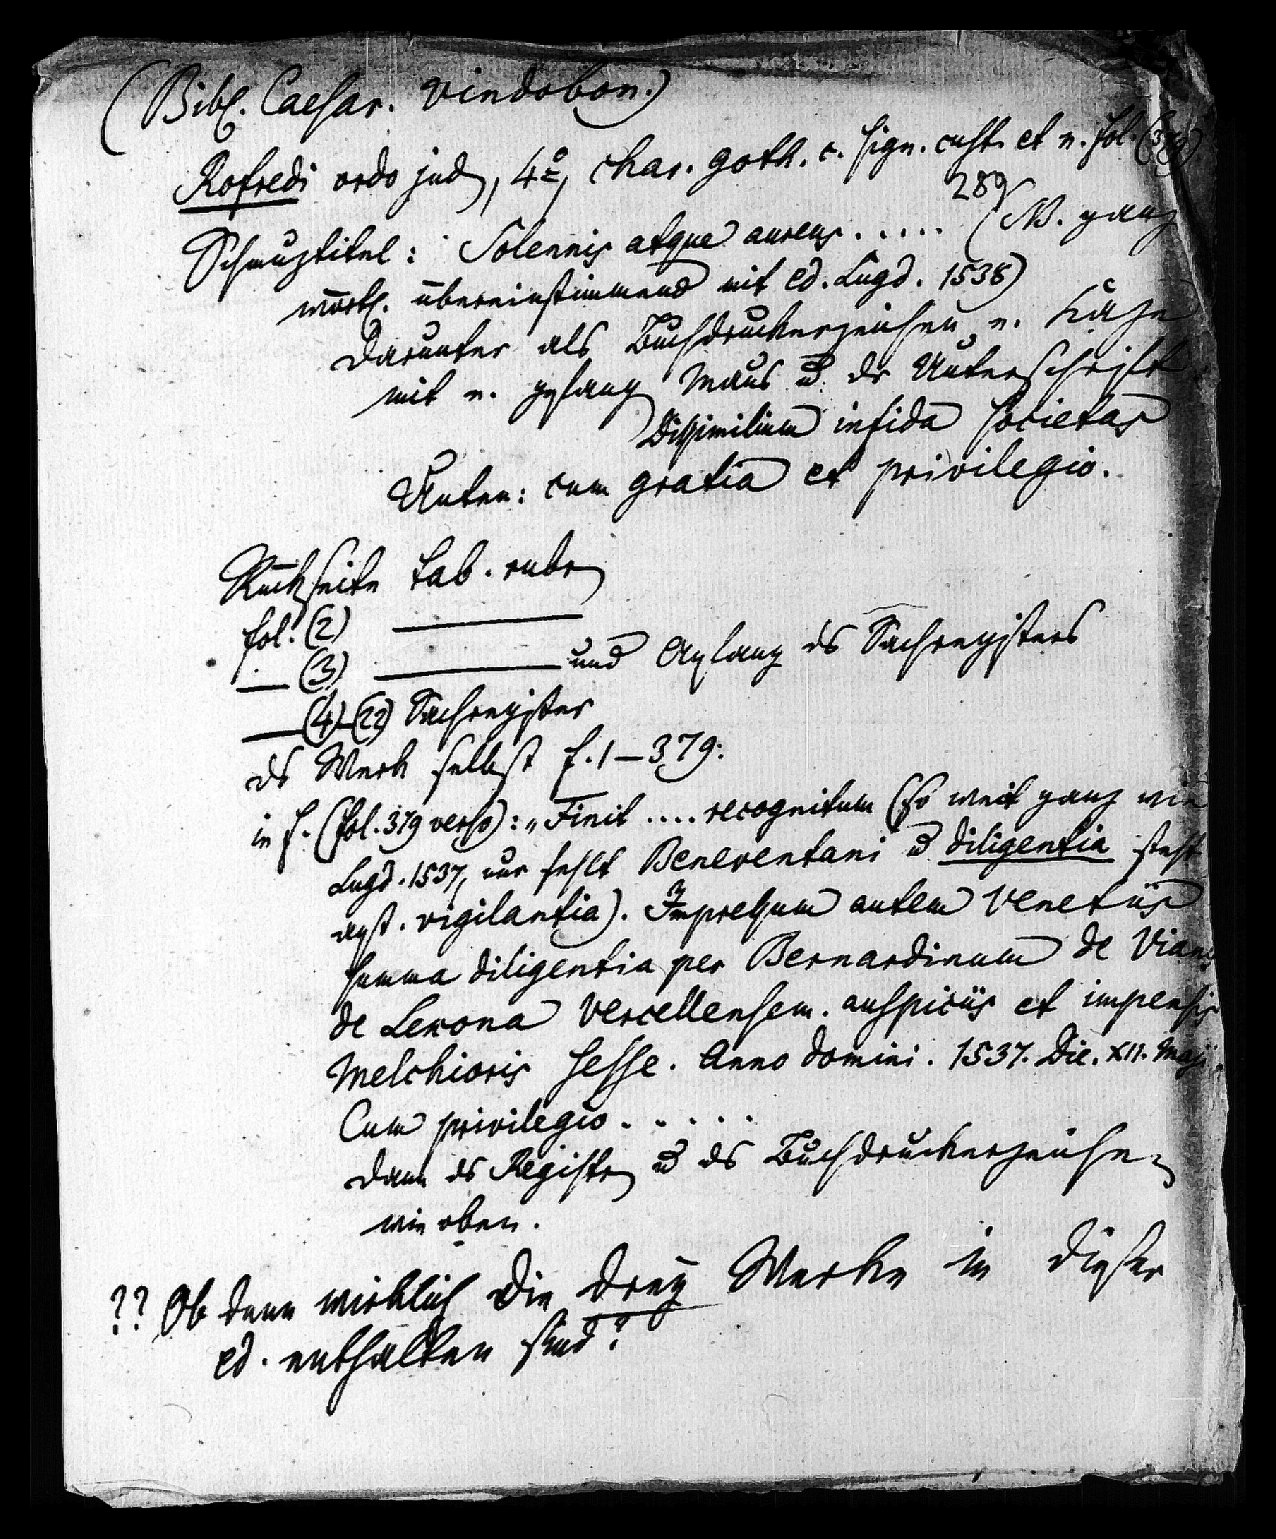 (Bibl. Caesar. Vindobon.)
Rofredi ordo jud, 4º, char. goth. c. sign. cust. et n. fol. (379)
289
Schmuztitel: Solennis atque aureus ..... (NB. ganz
wörtl. übereinstimmend mit ed. Lugd. 1538)
darunter als Buchdruckerzeichen e. Kaze
mit e. gefang Maus u. dr Unterschrift
Dissimilium infida societas
Unten: cum gratia et privilegio.
Rückseite tab. rubr
fol. (2) ———
— (3) ——— und Anfang ds Sachregisters
— (4)-(22) Sachregister
ds Werk selbst f. 1—379.
in f. (fol. 379 verso): „Finit .... recognitum (So weit ganz wie
Lugd. 1537, nur fehlt Beneventani u diligentia steht
anst. vigilantia). Impressum autem Venetiis
summa diligentia per Bernardinum de Viano
de Lexona Vercellensem. auspiciis et impensis
Melchioris Sesse. Anno domini. 1537. Die. XII. Maji.
Cum privilegio .....
dann ds Registr u ds Buchdruckerzeichen
wie oben.
?? Ob denn wirklich die drey Werke in dieser
ed. enthalten sind?